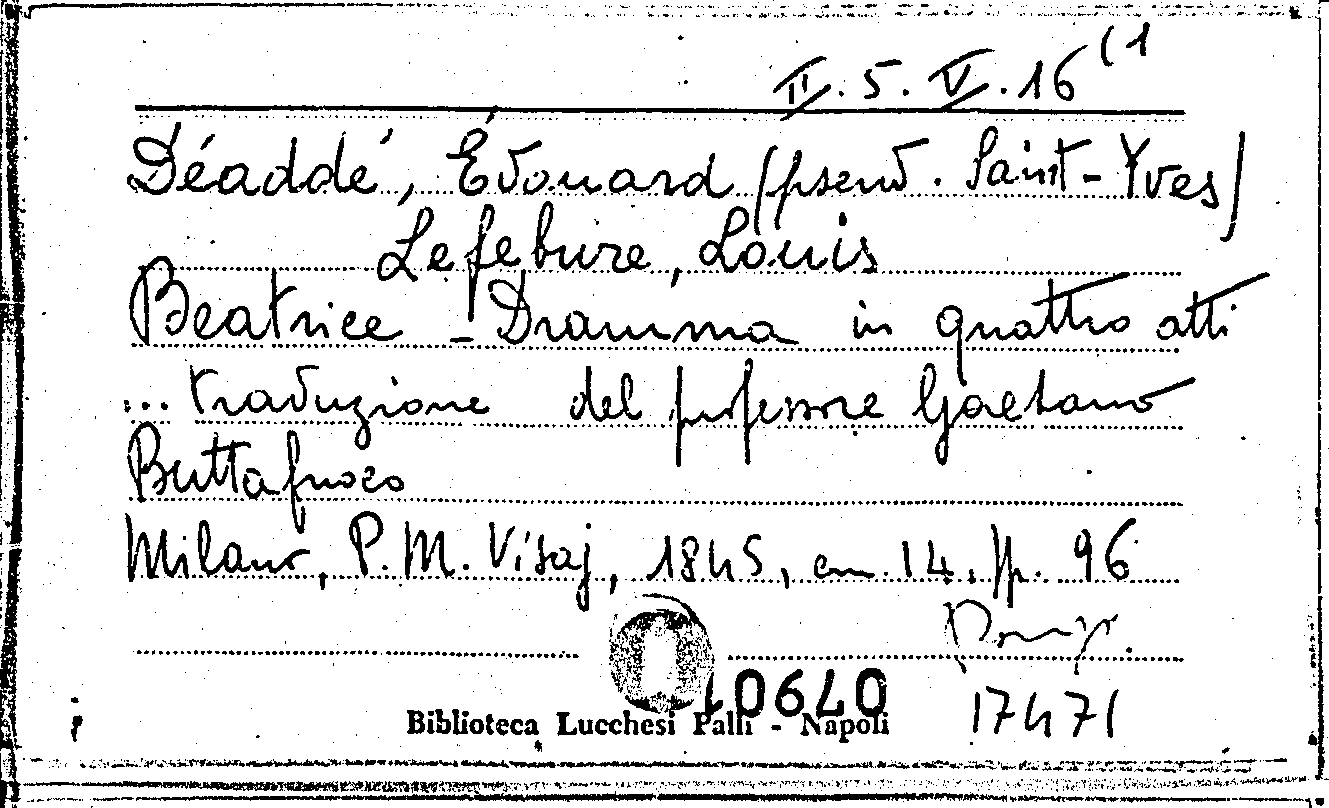 II. 5. V. 16 (1
Déaddé, Édouard (pseud. Saint-Yves)
Lefebure, Louis
Beatrice - Dramma in quattro atti
... traduzione del professore Gaetano
Buttafuoco
Milano, P. M. Visaj, 1845, cm. 14. pp. 96
17471
Biblioteca Lucchesi Palli - Napoli